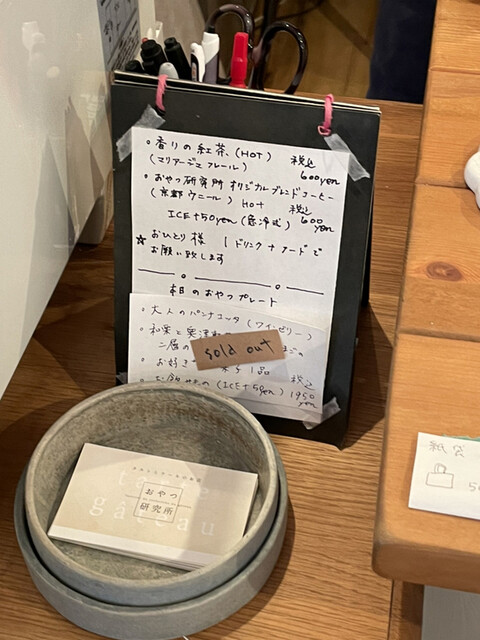 ○香りの紅茶、(HOT) 税込
(マリアージュ フレール) 600yen
○おやつ研究所 オリジナルブレンドコーヒー
(京都ウニール) Hot 税込
ICE+50yen (急冷式) 600yen
☆おひとり様 1ドリンク+フードで
お願い致します
本日のおやつプレート
○大人のパンナコッタ (ワインゼリー)
○和栗と
二層の
○お好き 1品 税込
(ICE+50yen) 1950yen
sold out
tarte
gâteau
おやつ
研究所